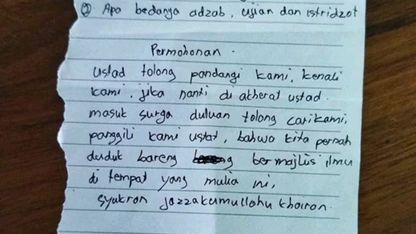 ② Apa bedanya adzab, ujian dan istridzot
Permohonan.
ustad tolong pandangi kami, kenali
kami, jika nanti di akherat ustad
masuk surga duluan tolong cari kami,
panggili kami ustat, bahwa kita pernah
duduk bareng bermajlis ilmu
di tempat yang mulia ini,
syukron jazzakumullohu khoiron.